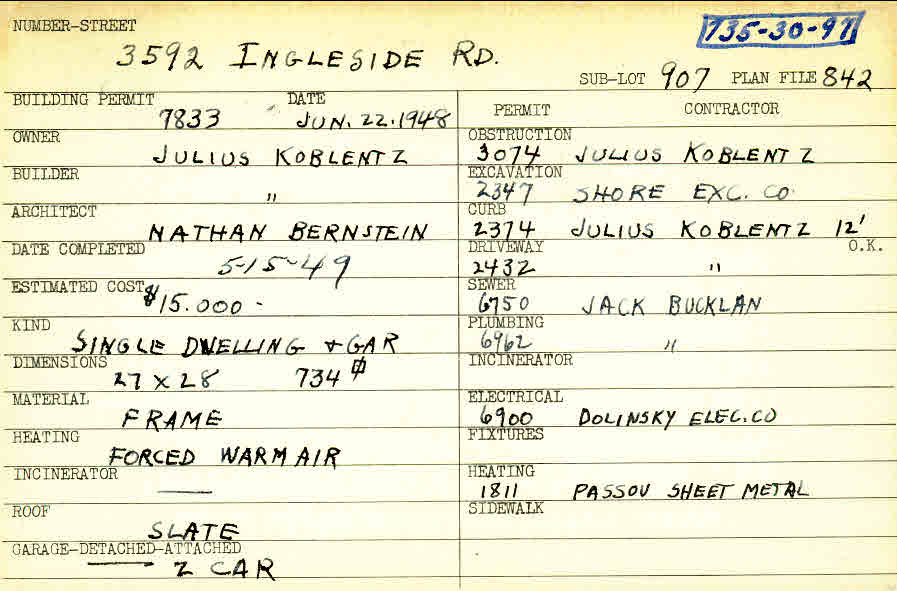 NUMBER-STREET
735-30-97
3592 INGLESIDE RD.
SUB-LOT 907 PLAN FILE 842
BUILDING PERMIT DATE
7833 JUN. 22. 1948
OWNER
JULIUS KOBLENTZ
BUILDER
"
ARCHITECT
NATHAN BERNSTEIN
DATE COMPLETED
5-15-49
ESTIMATED COST $15.000-
KIND
SINGLE DWELLING + GAR
DIMENSIONS
27 x 28 734
MATERIAL
FRAME
HEATING
FORCED WARM AIR
INCINERATOR
—
ROOF
SLATE
GARAGE-DETACHED-ATTACHED
2 CAR
PERMIT CONTRACTOR
OBSTRUCTION
3074 JULIUS KOBLENTZ
EXCAVATION
2347 SHORE EXC. CO.
CURB
2374 JULIUS KOBLENTZ 12'
DRIVEWAY O.K.
2432 "
SEWER
6750 JACK BUCKLAN
PLUMBING
6962 "
INCINERATOR
ELECTRICAL
6900 DOLINSKY ELEC.CO
FIXTURES
HEATING
1811 PASSOV SHEET METAL
SIDEWALK